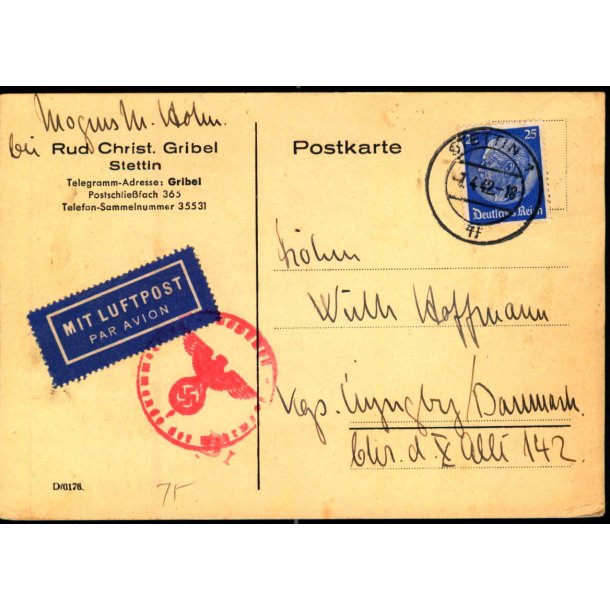 Mogens M. Holm.
bei
Rud. Christ. Gribel
Stettin
Telegramm-Adresse: Gribel
Postschließfach 365
Telefon-Sammelnummer 35531
Postkarte
25
STETTIN 1
-1.4.42.-18
Deutsches Reich
MIT LUFTPOST
PAR AVION
Willh Hoffmann
Kgs. Lyngby/Danmark.
Chr. d. X Allé 142.
D/0176.
75